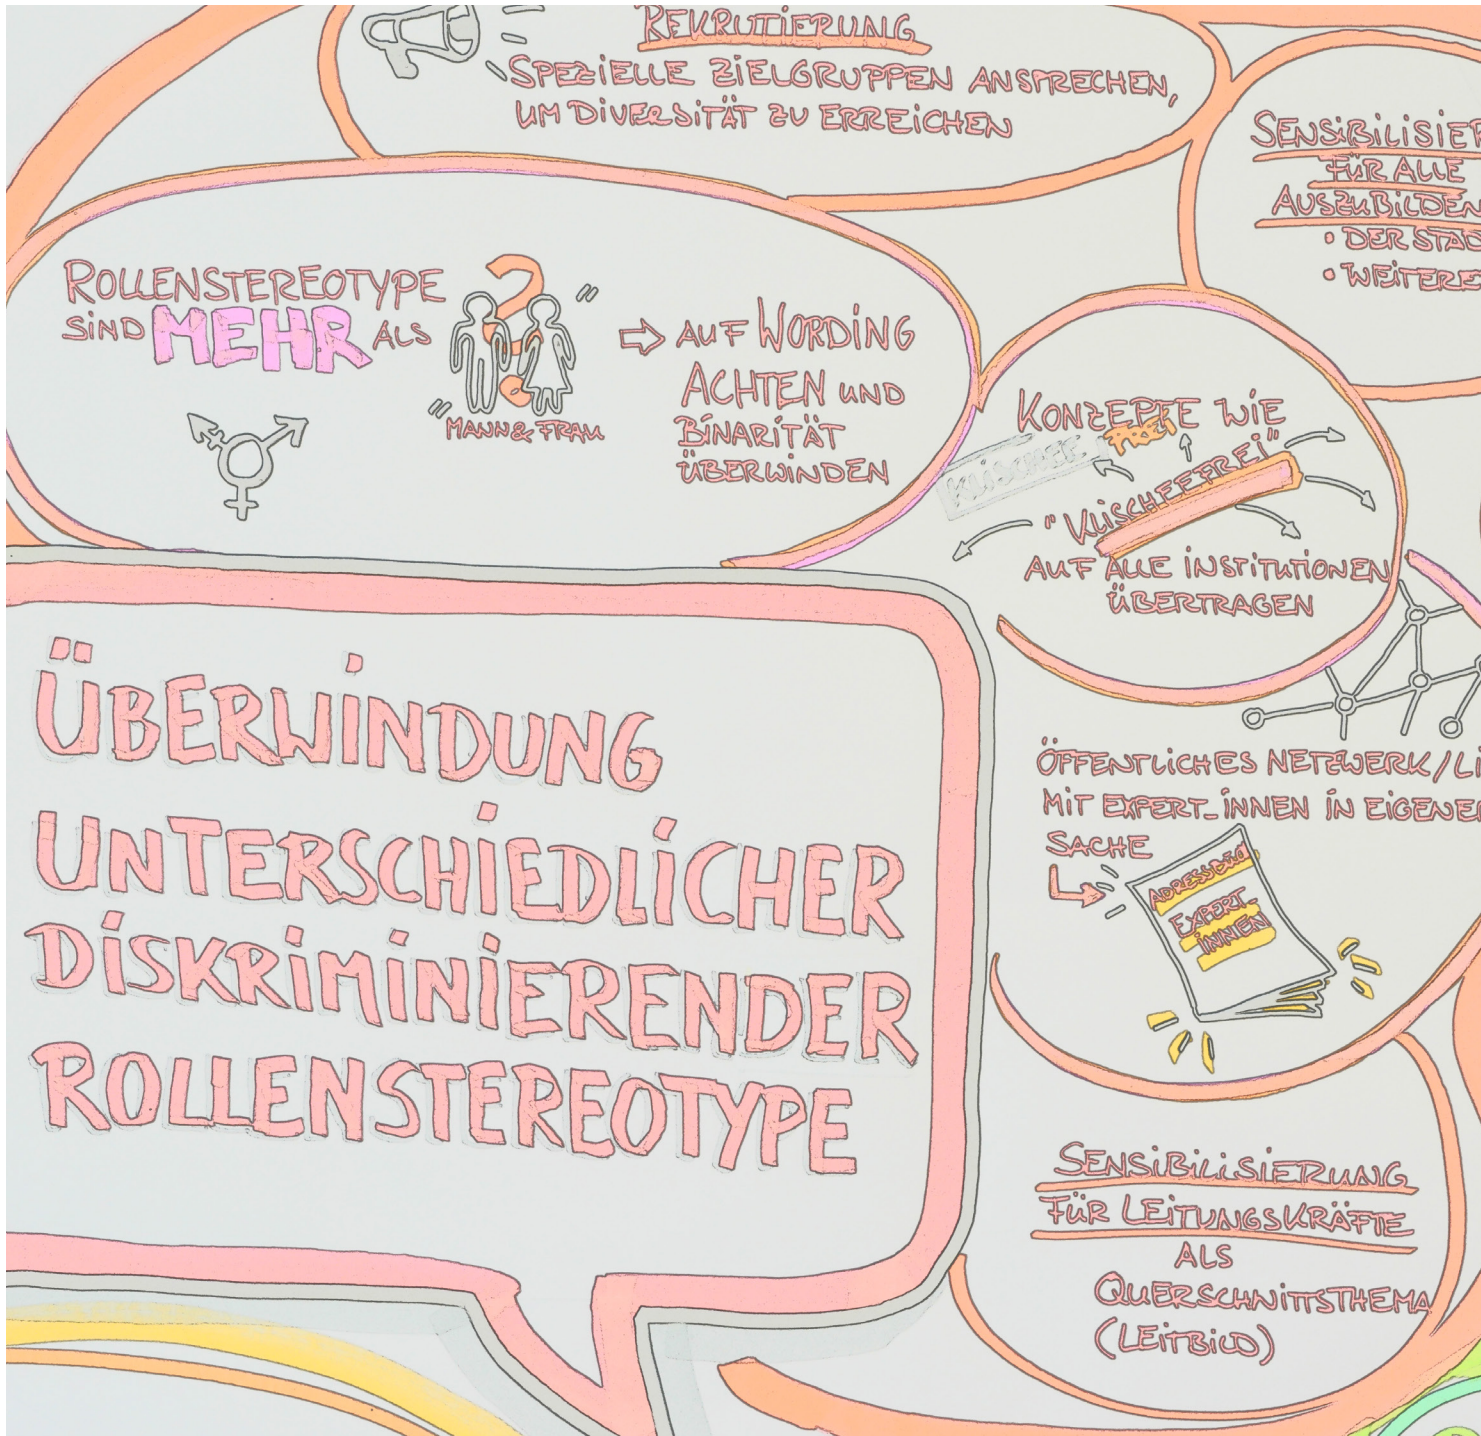 REKRUTIERUNG
SPEZIELLE ZIELGRUPPEN ANSPRECHEN,
UM DIVERSITÄT ZU ERREICHEN
FÜR ALLE
ROLLENSTEREOTYPE
SIND MEHR ALS
"MANN & FRAU"
AUF WORDING
ACHTEN UND
BINARITÄT
ÜBERWINDEN
KONZEPTE WIE
KLISCHEE FREI
"KLISCHEEFREI"
AUF ALLE INSTITUTIONEN
ÜBERTRAGEN
ÜBERWINDUNG
UNTERSCHIEDLICHER
DISKRIMINIERENDER
ROLLENSTEREOTYPE
ÖFFENTLICHES NETZWERK/
MIT EXPERT_INNEN IN
SACHE
EXPERT_
INNEN
SENSIBILISIERUNG
FÜR LEITUNGSKRÄFTE
ALS
QUERSCHNITTSTHEMA
(LEITBILD)